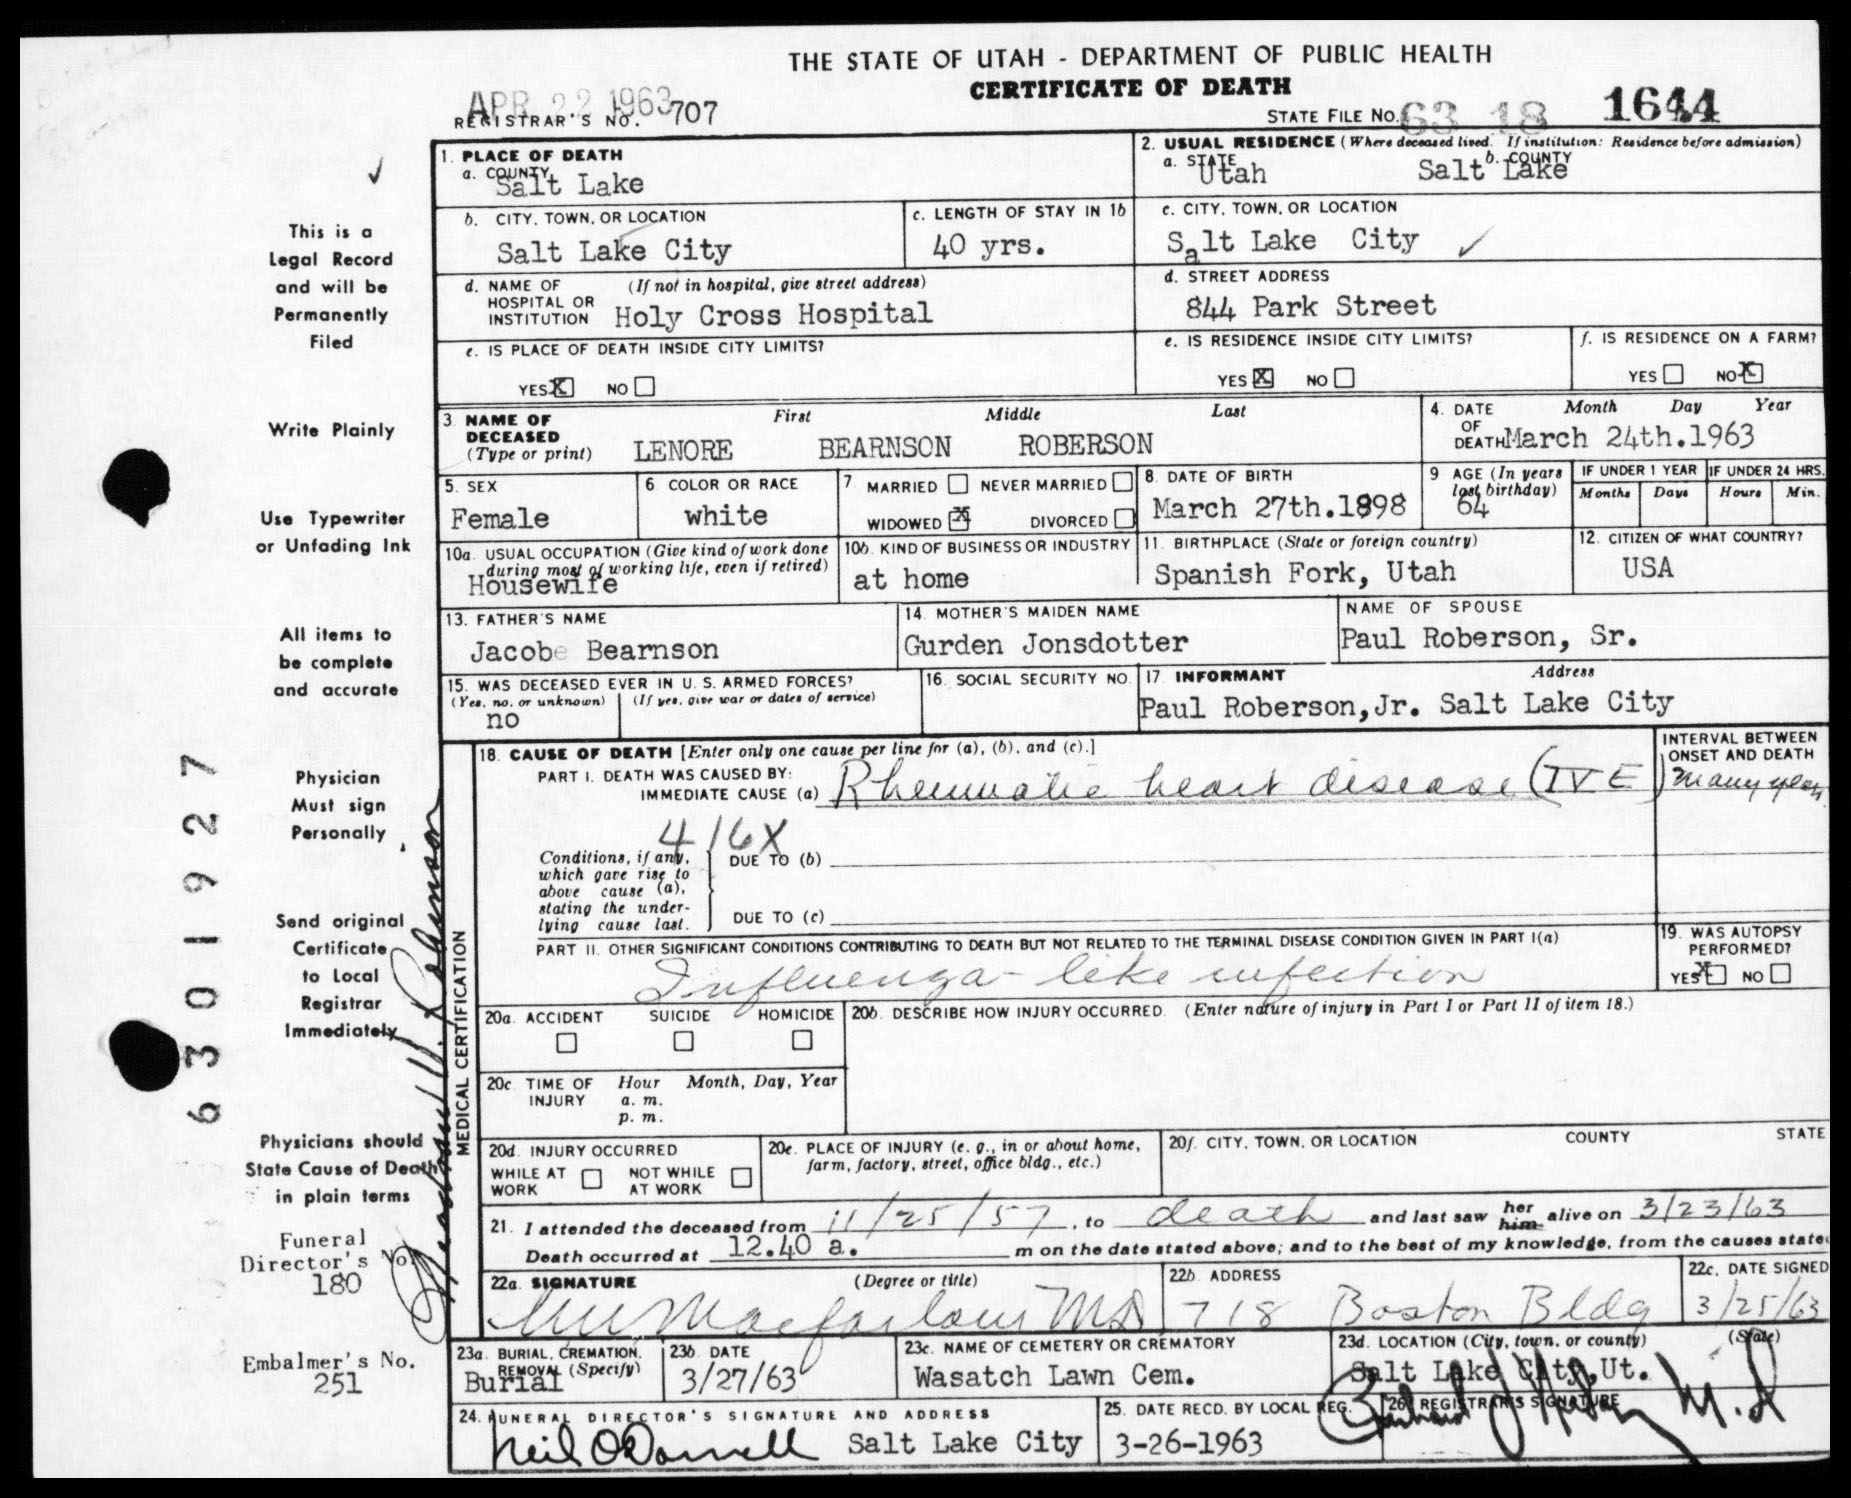 THE STATE OF UTAH - DEPARTMENT OF PUBLIC HEALTH
CERTIFICATE OF DEATH
APR 22 1963
REGISTRAR'S NO. 707
STATE FILE NO. 63 18 1644
1. PLACE OF DEATH
a. COUNTY
Salt Lake
2. USUAL RESIDENCE (Where deceased lived. If institution: Residence before admission)
a. STATE b. COUNTY
Utah Salt Lake
b. CITY, TOWN, OR LOCATION
Salt Lake City
c. LENGTH OF STAY IN 1b
40 yrs.
c. CITY, TOWN, OR LOCATION
Salt Lake City
d. NAME OF (If not in hospital, give street address)
HOSPITAL OR
INSTITUTION Holy Cross Hospital
d. STREET ADDRESS
844 Park Street
e. IS PLACE OF DEATH INSIDE CITY LIMITS?
YES X NO
e. IS RESIDENCE INSIDE CITY LIMITS?
YES X NO
f. IS RESIDENCE ON A FARM?
YES NO X
3 NAME OF First Middle Last
DECEASED
(Type or print) LENORE BEARNSON ROBERSON
4. DATE Month Day Year
OF
DEATH March 24th.1963
5. SEX
Female
6. COLOR OR RACE
white
7 MARRIED NEVER MARRIED
WIDOWED X DIVORCED
8. DATE OF BIRTH
March 27th.1898
9 AGE (In years
last birthday)
64
IF UNDER 1 YEAR IF UNDER 24 HRS.
Months Days Hours Min.
10a. USUAL OCCUPATION (Give kind of work done
during most of working life, even if retired)
Housewife
10b. KIND OF BUSINESS OR INDUSTRY
at home
11. BIRTHPLACE (State or foreign country)
Spanish Fork, Utah
12. CITIZEN OF WHAT COUNTRY?
USA
13. FATHER'S NAME
Jacob Bearnson
14. MOTHER'S MAIDEN NAME
Gurden Jonsdotter
NAME OF SPOUSE
Paul Roberson, Sr.
15. WAS DECEASED EVER IN U. S. ARMED FORCES?
(Yes, no, or unknown) (If yes, give war or dates of service)
no
16. SOCIAL SECURITY NO.
17. INFORMANT Address
Paul Roberson,Jr. Salt Lake City
18. CAUSE OF DEATH [Enter only one cause per line for (a), (b), and (c).]
PART I. DEATH WAS CAUSED BY:
IMMEDIATE CAUSE (a) Rheumatic heart disease (IV E)
INTERVAL BETWEEN
ONSET AND DEATH
many years
416X
Conditions, if any,
which gave rise to
above cause (a),
stating the under-
lying cause last.
DUE TO (b)
DUE TO (c)
PART II. OTHER SIGNIFICANT CONDITIONS CONTRIBUTING TO DEATH BUT NOT RELATED TO THE TERMINAL DISEASE CONDITION GIVEN IN PART I(a)
Influenza-like infection
19. WAS AUTOPSY
PERFORMED?
YES X NO
20a. ACCIDENT SUICIDE HOMICIDE
20b. DESCRIBE HOW INJURY OCCURRED. (Enter nature of injury in Part I or Part II of item 18.)
20c. TIME OF Hour Month, Day, Year
INJURY a. m.
p. m.
20d. INJURY OCCURRED
WHILE AT WORK NOT WHILE AT WORK
20e. PLACE OF INJURY (e. g., in or about home,
farm, factory, street, office bldg., etc.)
20f. CITY, TOWN, OR LOCATION COUNTY STATE
21. I attended the deceased from 11/25/57, to death and last saw her him alive on 3/23/63
Death occurred at 12.40 a. m on the date stated above; and to the best of my knowledge, from the causes state
22a. SIGNATURE (Degree or title)
Macfarlane MD
22b. ADDRESS
718 Boston Bldg
22c. DATE SIGNED
3/25/63
23a. BURIAL, CREMATION,
REMOVAL (Specify)
Burial
23b. DATE
3/27/63
23c. NAME OF CEMETERY OR CREMATORY
Wasatch Lawn Cem.
23d. LOCATION (City, town, or county) (State)
Salt Lake City,Ut.
24. FUNERAL DIRECTOR'S SIGNATURE AND ADDRESS
Neil O'Donnell Salt Lake City
25. DATE RECD. BY LOCAL REG.
3-26-1963
26. REGISTRAR'S SIGNATURE
M.D
MEDICAL CERTIFICATION
This is a
Legal Record
and will be
Permanently
Filed
Write Plainly
Use Typewriter
or Unfading Ink
All items to
be complete
and accurate
Physician
Must sign
Personally
Send original
Certificate
to Local
Registrar
Immediately
Physicians should
State Cause of Death
in plain terms
Funeral
Director's No.
180
Embalmer's No.
251
6301927
Robinson